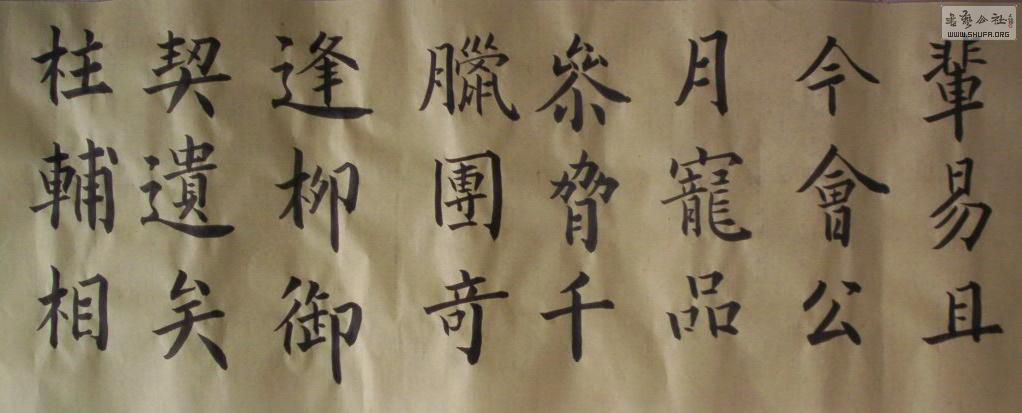 輩易且
今會公
月寵品
叅脅千
臘團奇
逢柳御
契遺矣
柱輔相
WWW.SHUFA.ORG